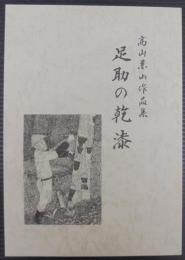 高山景山作品集
足助の乾漆